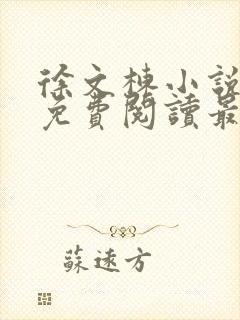 徐文棟小說
免費閱讀最
蘇遠方